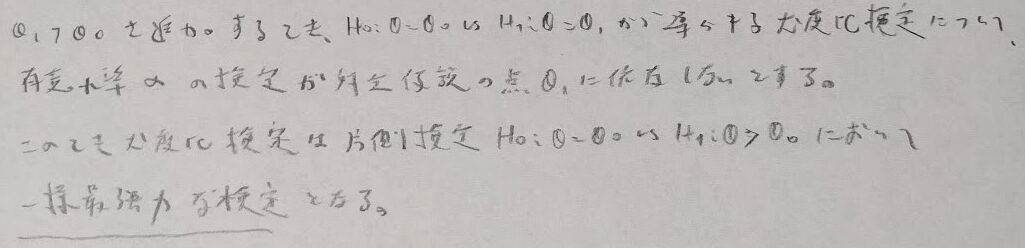 θ₁>θ₀を追加するとき、H₀:θ=θ₀ vs H₁:θ=θ₁ が導かする尤度比検定について、
有意水準αの検定が対立仮説の点θ₁に依存しないとする。
このとき尤度比検定は片側検定H₀:θ=θ₀ vs H₁:θ>θ₀において
一様最強力な検定となる。